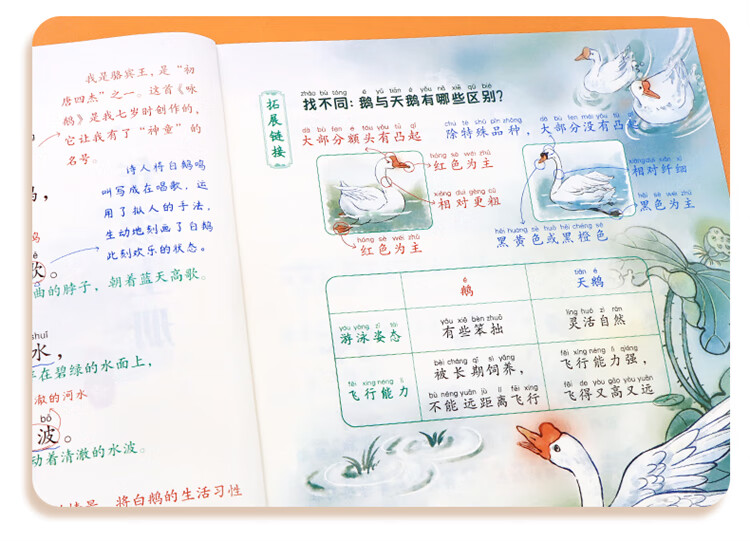 我是骆宾王，是“初
唐四杰”之一。这首《咏
鹅》是我七岁时创作的，
它让我有了“神童”的
名号。
诗人将白鹅鸣
叫写成在唱歌，运
用了拟人的手法，
生动地刻画了白鹅
此刻欢乐的状态。
歌。
曲的脖子，朝着蓝天高歌。
shuǐ
水，
在碧绿的水面上，
澈的河水
bō
波。
动着清澈的水波。
将白鹅的生活习性
拓展链接
zhǎo bù tóng é yǔ tiān é yǒu nǎ xiē qū bié
找不同：鹅与天鹅有哪些区别？
dà bù fen é tóu yǒu tū qǐ
大部分额头有凸起
hóng sè wéi zhǔ
红色为主
xiāng duì gèng cū
相对更粗
hóng sè wéi zhǔ
红色为主
chú tè shū pǐn zhǒng dà bù fen méi yǒu tū qǐ
除特殊品种，大部分没有凸起
xiāng duì xiān xì
相对纤细
hēi sè wéi zhǔ
黑色为主
hēi huáng sè huò hēi chéng sè
黑黄色或黑橙色
é tiān é
鹅 天鹅
yóu yǒng zī tài yǒu xiē bèn zhuō líng huó zì rán
游泳姿态 有些笨拙 灵活自然
fēi xíng néng lì bèi cháng qī sì yǎng fēi xíng néng lì qiáng
飞行能力 被长期饲养， 飞行能力强，
bù néng yuǎn jù lí fēi xíng fēi de yòu gāo yòu yuǎn
不能远距离飞行 飞得又高又远